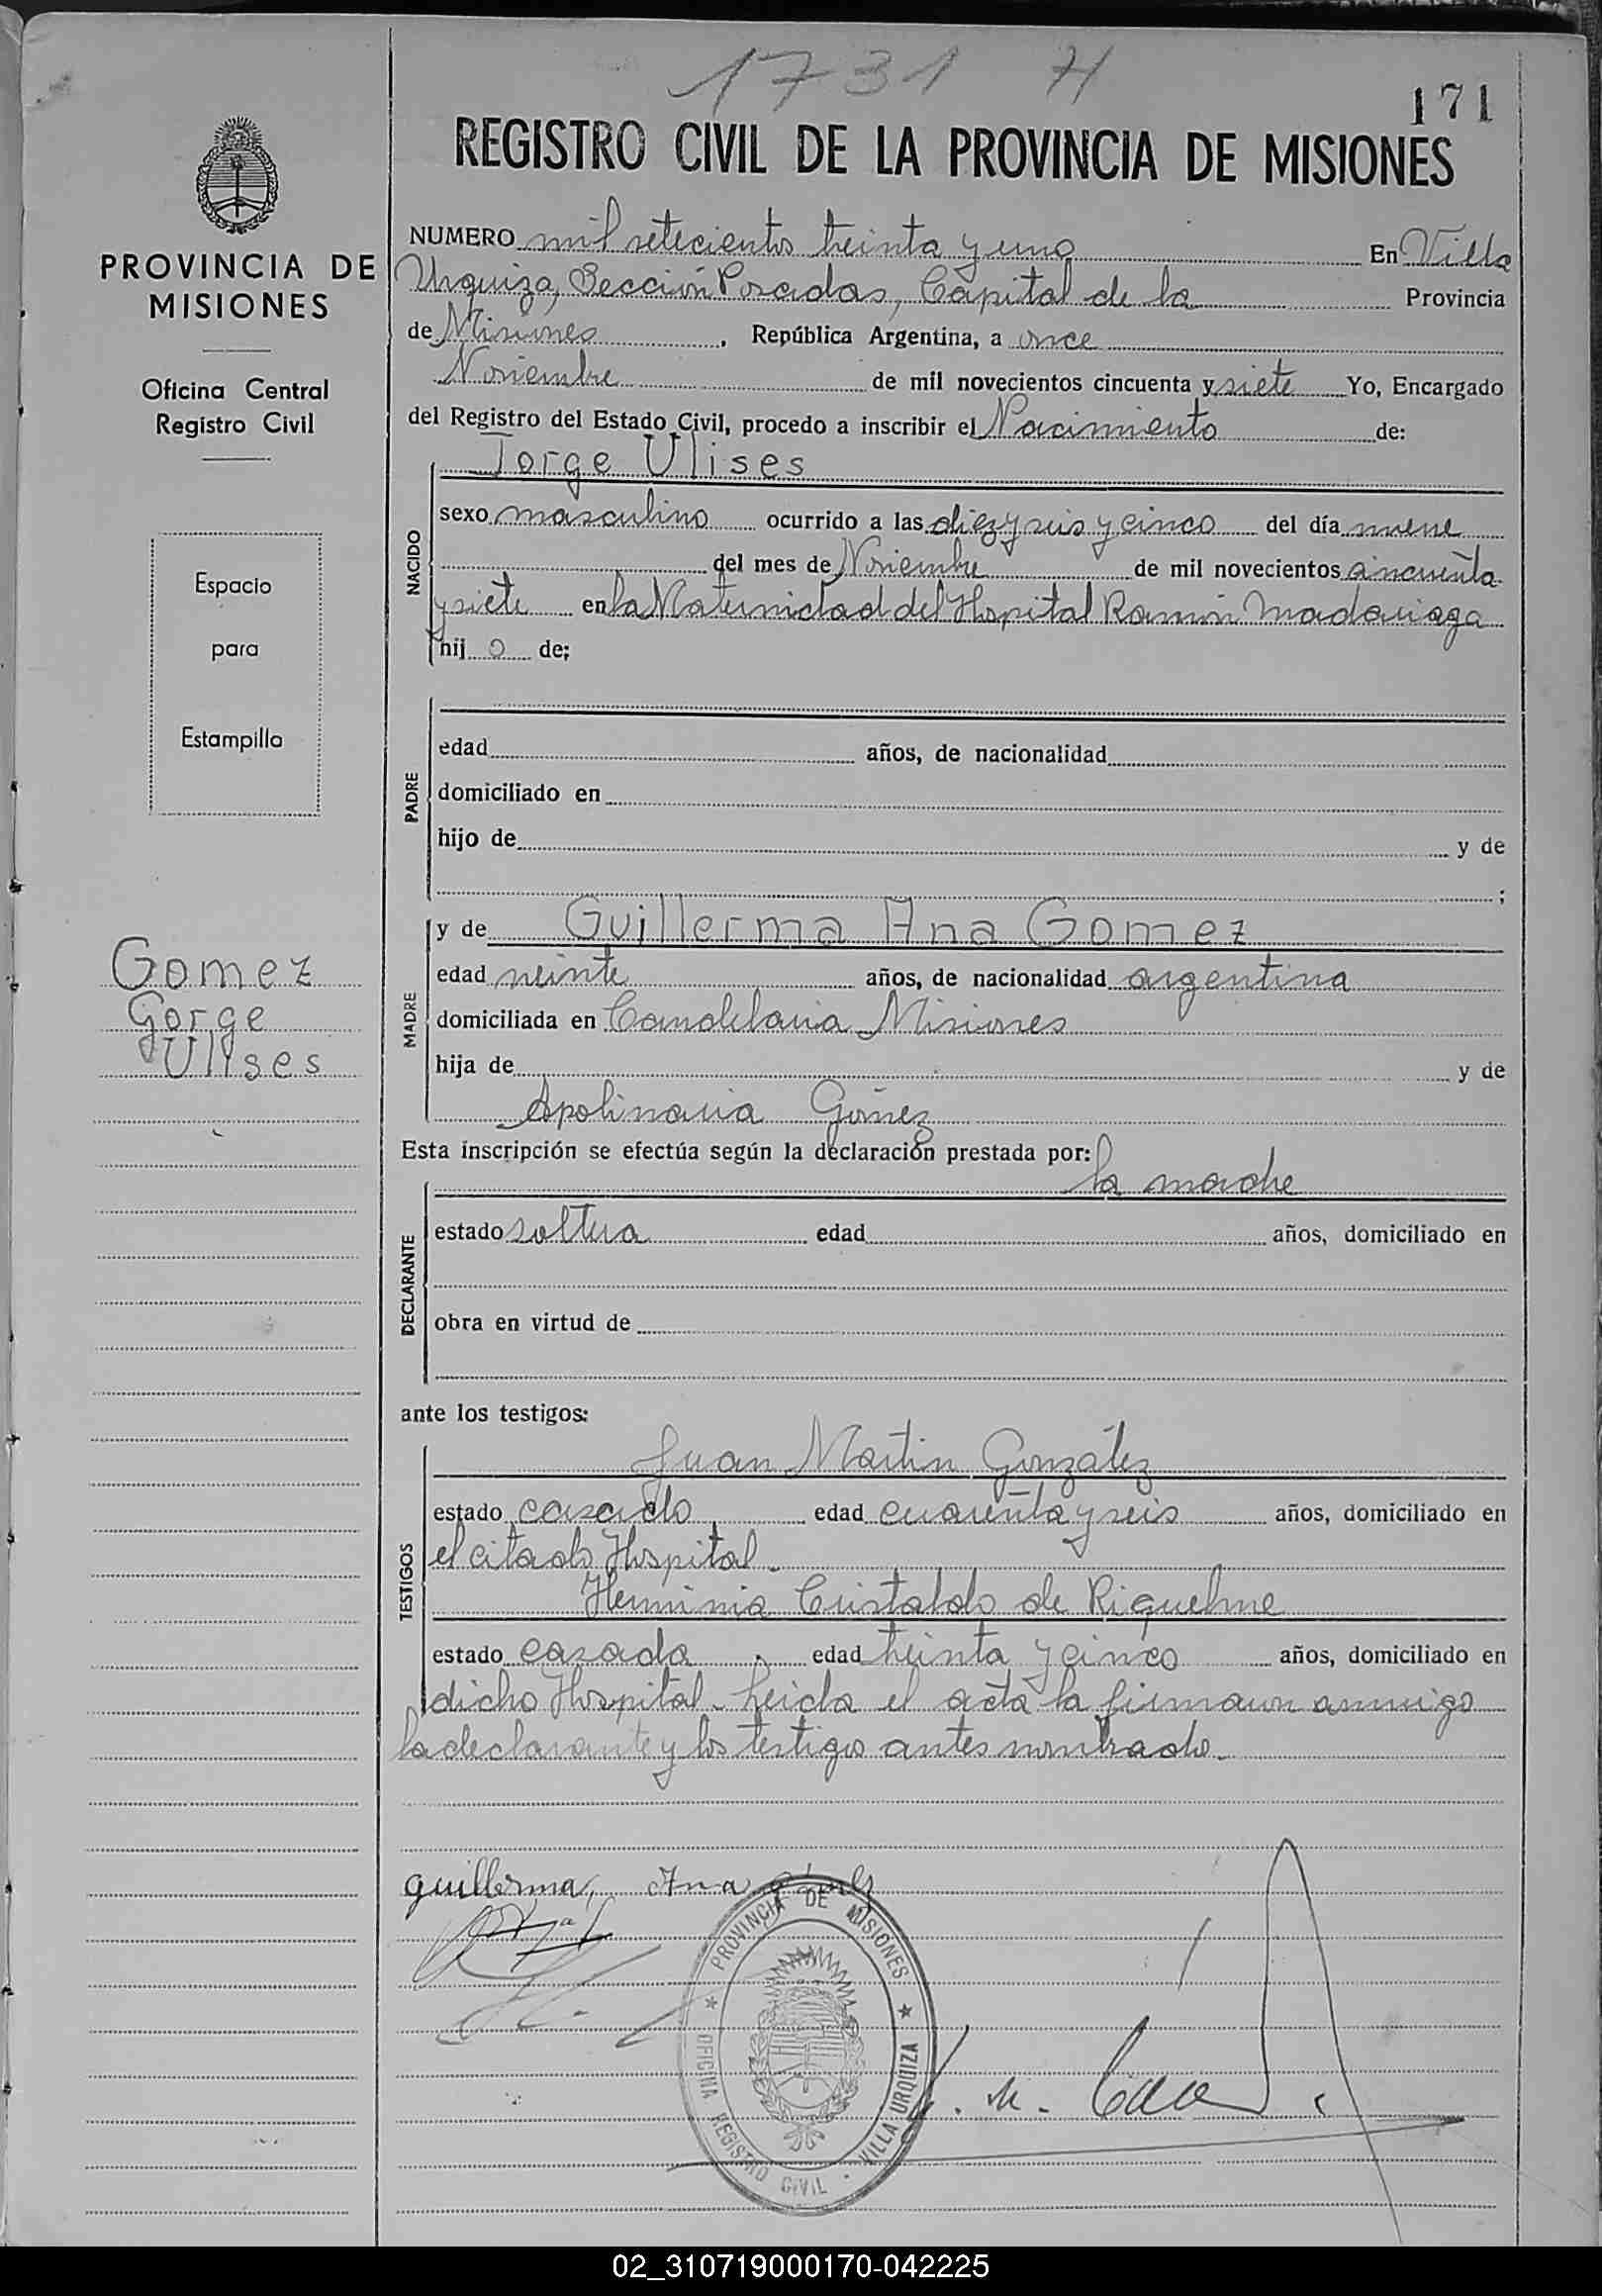 1731 H
171
REGISTRO CIVIL DE LA PROVINCIA DE MISIONES
PROVINCIA DE
MISIONES
Oficina Central
Registro Civil
Espacio
para
Estampilla
Gomez
Gorge
Ulises
NUMERO mil setecientos treinta y uno En Villa
Urquiza, Sección Posadas, Capital de la Provincia
de Misiones, República Argentina, a once
Noviembre de mil novecientos cincuenta y siete Yo, Encargado
del Registro del Estado Civil, procedo a inscribir el Nacimiento de:
Jorge Ulises
NACIDO
sexo masculino ocurrido a las diez y seis y cinco del día nueve
del mes de Noviembre de mil novecientos cincuenta
y siete en la Maternidad del Hospital Ramón Madariaga
hij o de;
PADRE
edad años, de nacionalidad
domiciliado en
hijo de y de
;
MADRE
y de Guillerma Ana Gomez
edad veinte años, de nacionalidad argentina
domiciliada en Candelaria Misiones
hija de y de
Apolinaria Gómez
Esta inscripción se efectúa según la declaración prestada por:
la madre
DECLARANTE
estado soltera edad años, domiciliado en
obra en virtud de
ante los testigos:
TESTIGOS
Juan Martin González
estado casado edad cuarenta y seis años, domiciliado en
el citado Hospital.
Herminia Cristaldo de Riquelme
estado casada edad treinta y cinco años, domiciliado en
dicho Hospital. Leida el acta la firmaron conmigo
la declarante y los testigos antes nombrado.
guillerma, Ana
PROVINCIA DE MISIONES
OFICINA REGISTRO CIVIL · VILLA URQUIZA
02_310719000170-042225